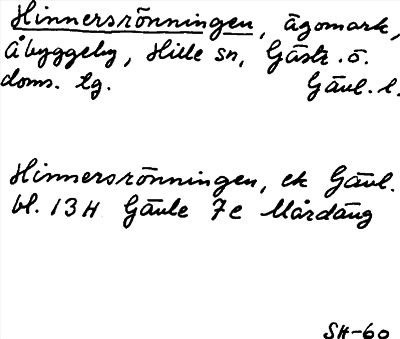 Hinnersrönningen, ägomark,
Åbyggeby, Hille sn, Gästr. ö.
doms. tg. Gävl. l.
Hinnersrönningen, ek Gävl.
bl. 13 H Gävle 7 c Mårdäng
SH-60